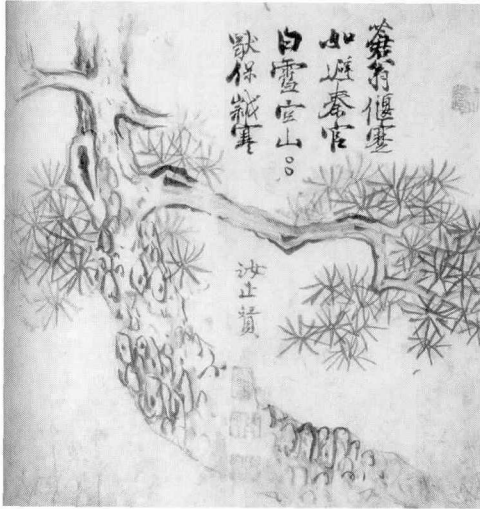 蒼翁偃蹇
如避秦官
白雪空山
保歲寒
汝止贊